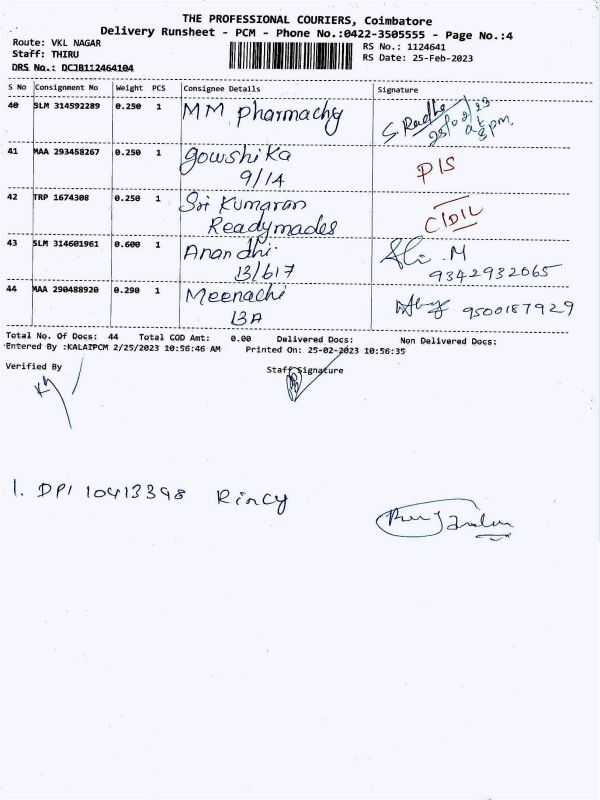 THE PROFESSIONAL COURIERS, Coimbatore
Delivery Runsheet - PCM - Phone No.:0422-3505555 - Page No.:4
Route: VKL NAGAR
Staff: THIRU
DRS No.: DCJB112464104
RS No.: 1124641
RS Date: 25-Feb-2023
S No Consignment No Weight PCS Consignee Details Signature
40 SLM 314592289 0.250 1 MM Pharmachy S. Radha
25/02/23
at
3pm
41 MAA 293458267 0.250 1 gowshika
9/14 P/S
42 TRP 1674308 0.250 1 Sri Kumaran
Readymades
43 SLM 314601961 0.600 1 Anandhi M
13/617 9342932065
44 MAA 290488920 0.290 1 Meenachi 9500187929
13A
Total No. Of Docs: 44 Total COD Amt: 0.00 Delivered Docs: Non Delivered Docs:
Entered By :KALAIPCM 2/25/2023 10:56:46 AM Printed On: 25-02-2023 10:56:35
Verified By Staff Signature
1. DPI 10413398 Rincy